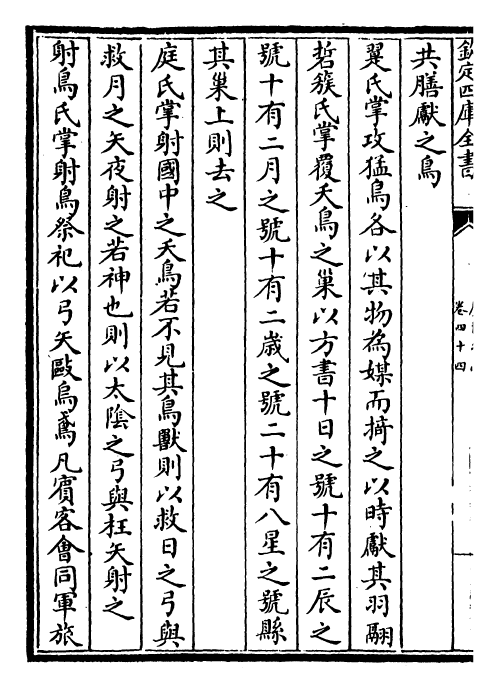 欽定四庫全書
卷四十四
共膳獻之鳥
翨氏掌攻猛鳥各以其物為媒而掎之以時獻其羽翮
硩蔟氏掌覆夭鳥之巢以方書十日之號十有二辰之
號十有二月之號十有二歲之號二十有八星之號縣
其巢上則去之
庭氏掌射國中之夭鳥若不見其鳥獸則以救日之弓與
救月之矢夜射之若神也則以太陰之弓與枉矢射之
射鳥氏掌射鳥祭祀以弓矢敺烏鳶凡賓客會同軍旅